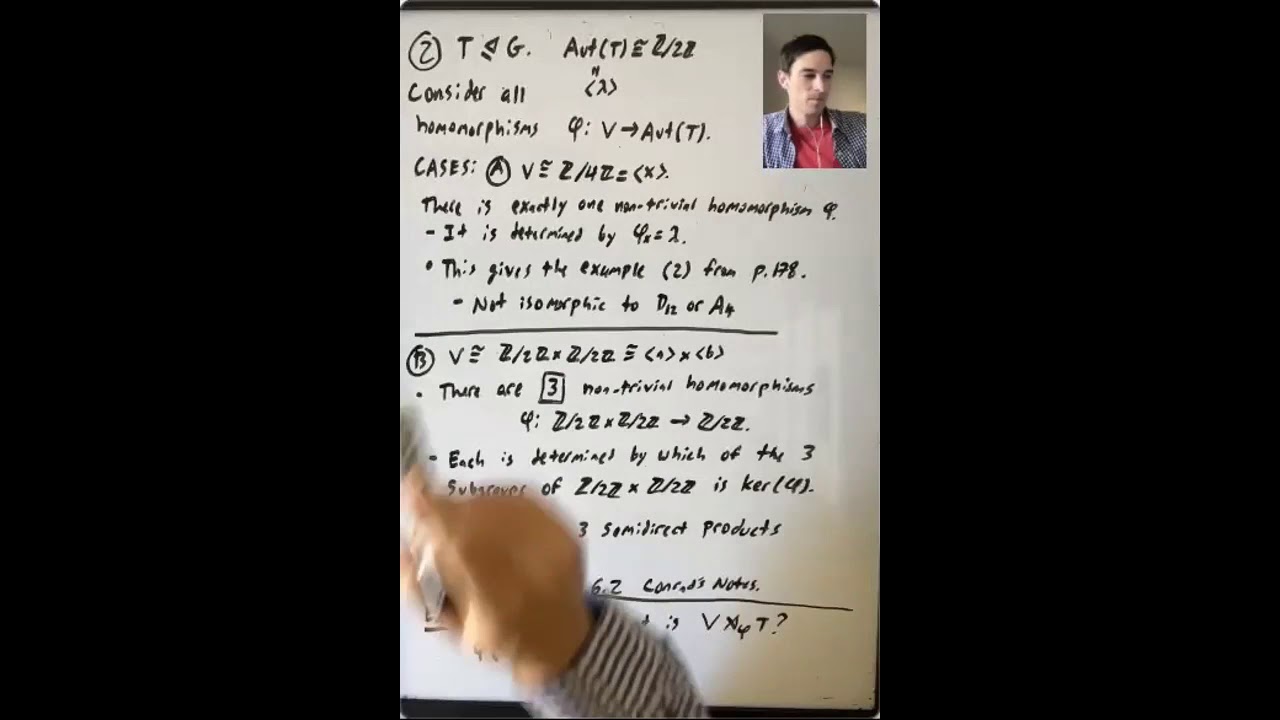 ② T ⊴ G. Aut(T) ≅ ℤ/2ℤ
"
⟨λ⟩
Consider all
homomorphisms φ: V → Aut(T).
CASES: Ⓐ V ≅ ℤ/4ℤ = ⟨x⟩.
There is exactly one non-trivial homomorphism φ.
- It is determined by φₓ = λ.
• This gives the example (2) from p.178.
- Not isomorphic to D₁₂ or A₄
Ⓑ V ≅ ℤ/2ℤ × ℤ/2ℤ ≅ ⟨a⟩ × ⟨b⟩
• There are 3 non-trivial homomorphisms
φ: ℤ/2ℤ × ℤ/2ℤ → ℤ/2ℤ.
• Each is determined by which of the 3
Subgroups of ℤ/2ℤ × ℤ/2ℤ is ker(φ).
3 semidirect products
6.2 Conrad's Notes.
is V ⋊φ T?